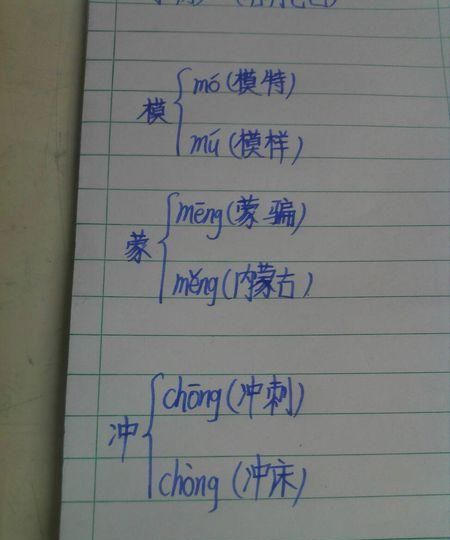 模
mó (模特)
mú (模样)
蒙
mēng (蒙骗)
měng (内蒙古)
冲
chōng (冲刺)
chòng (冲床)